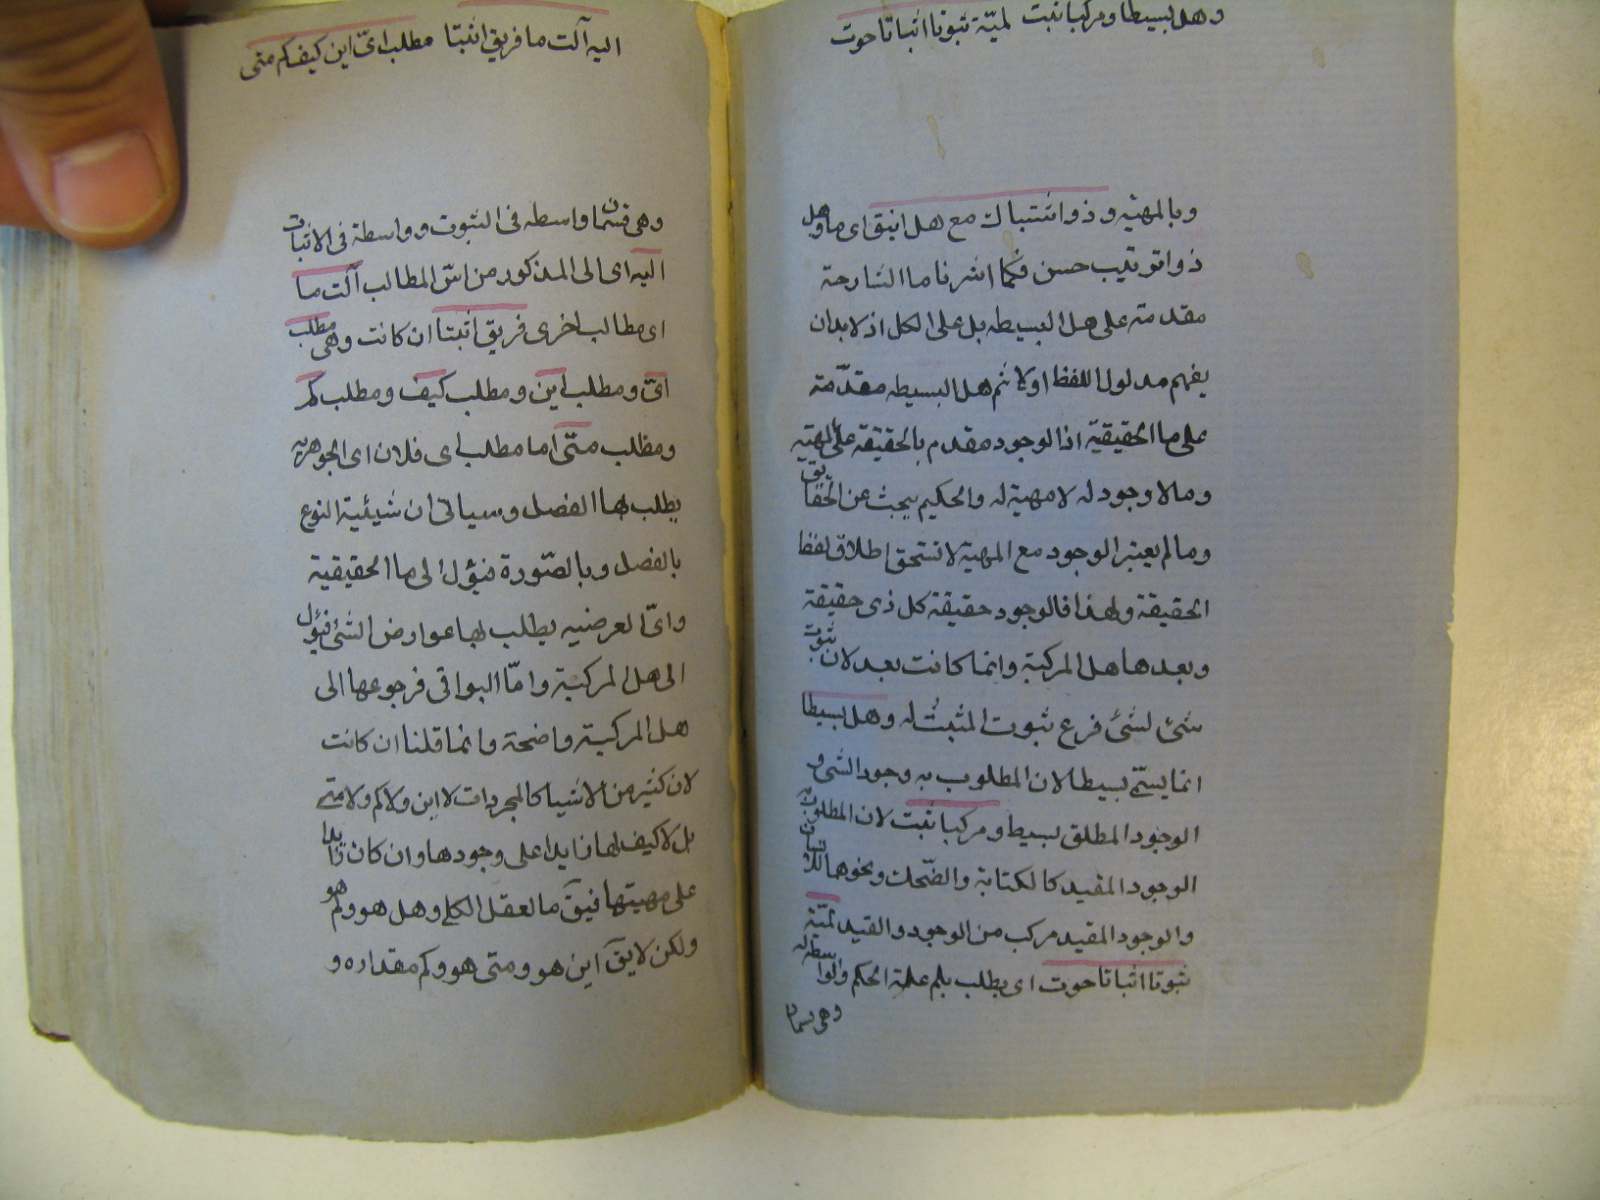 وهل بسيطا ومركبا ثبت لميّة ثبوتا اثباتا حوت
وبالمهيّه وذو اشتباك مع هل انيق اى ما وهل
ذو ترتيب حسن فكما اشرنا ما الشارحة
مقدمة على هل البسيطه بل على الكل اذ لا بد ان
يفهم مدلول اللفظ اولا ثم هل البسيطه مقدّمة
على ما الحقيقية اذ الوجود مقدم بالحقيقة على المهيه
وما لا وجود له لا مهية له والحكيم يبحث عن الحقايق
وما لم يعتبر الوجود مع المهية لا تستحق اطلاق لفظ
الحقيقة ولهذا فالوجود حقيقة كل ذى حقيقة
وبعدها هل المركبة وانما كانت بعد لان ثبوت
شئ لشئ فرع ثبوت المثبت له وهل بسيطا
انما يسمّى بسيطا لان المطلوب به وجود الشئ و
الوجود المطلق بسيط ومركبا ثبت لان المطلوب به
الوجود المقيد كالكتابة والضحك ونحوهما للانسان
والوجود المقيد مركب من الوجود والقيد لميّة
ثبوتا اثباتا حوت اى يطلب بلم علة الحكم والواسطة له
وهى قسمان
اليه آلت ما فريق اثبتا مطلب اىّ اين كيف كم متى
وهى قسمان واسطه فى الثبوت وواسطة فى الاثبات
اليه اى الى المذكور من اسّ المطالب آلت ما
اى مطالب اخرى فريق اثبتا ان كانت وهى مطلب
اىّ ومطلب اين ومطلب كيف ومطلب كم
ومطلب متى اما مطلب اى فلان اى الجوهرية
يطلب بها الفصل وسياتى ان شيئية النوع
بالفصل وبالصّورة فيؤل الى ما الحقيقية
واىّ العرضيه يطلب بها عوارض الشئ فيؤل
الى هل المركبّة وامّا البواقى فرجوعها الى
هل المركبة واضحة وانما قلنا ان كانت
لان كثير من الاشيا كالمجردات لا اين ولا كم ولا متى
بل لا كيف لها زايدا على وجودها وان كان زايدا
على مهيتها فيقَ ما لعقل الكلى وهل هو ولم هو
ولكن لا يقَ اين هو ومتى هو وكم مقداره و